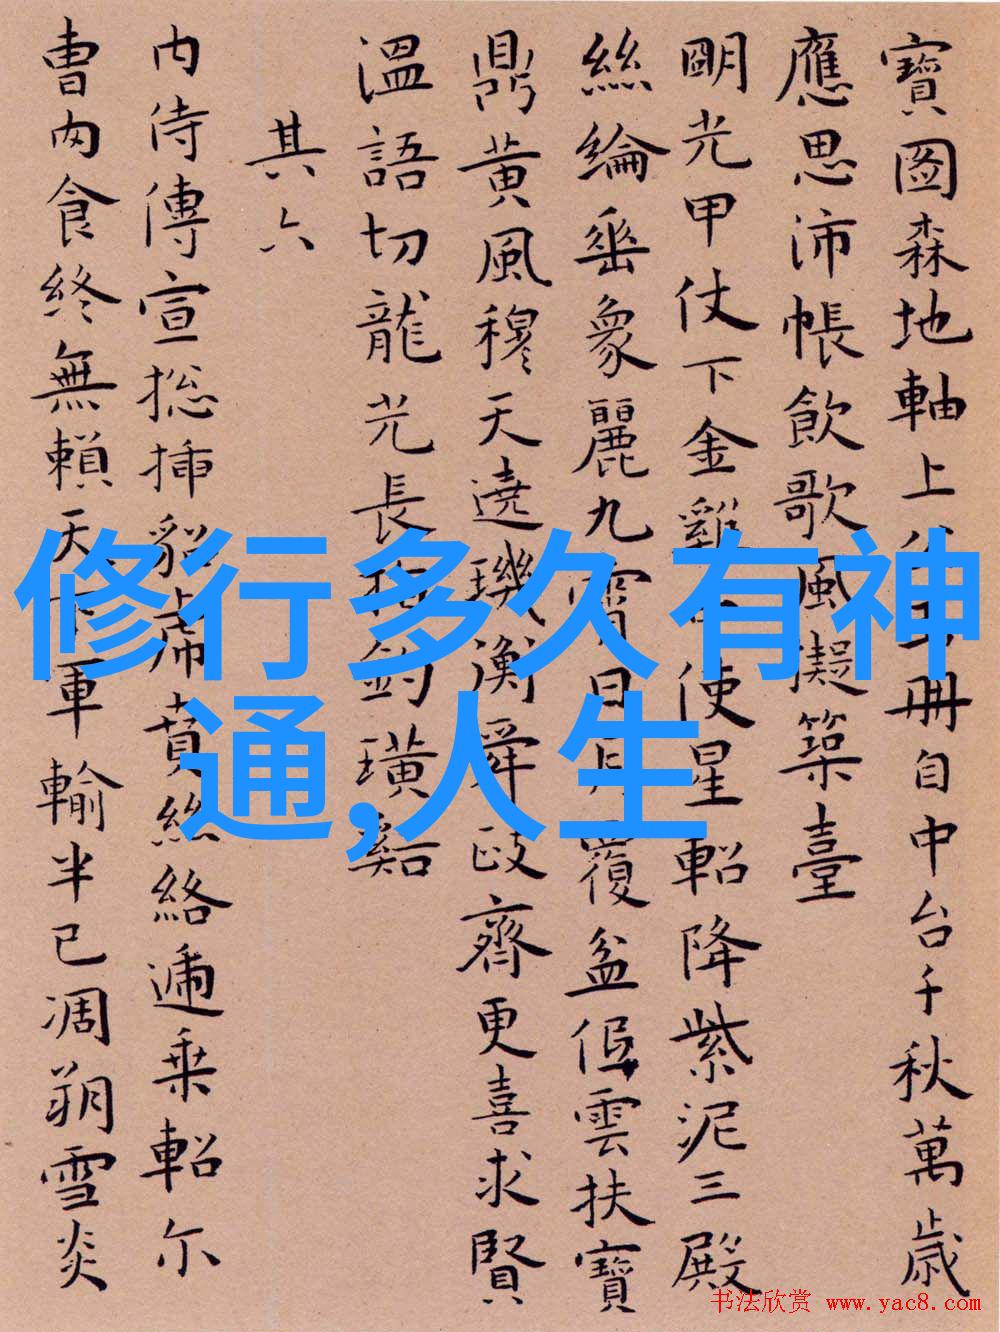 修行多久有神
通,人生
寶圖森地軸上冊自中台千秋萬歲
應思沛帳飲歌風擬築臺
明光甲仗下金雞使星軺降紫泥三殿
絲綸垂象麗九霄日月覆盆侶雲扶寶
鼎黃風穆天遶璣衡舜政齊更喜求賢
溫語切龍光長釣璜谿
其六
內侍傳宣捴揷貂席賁絲絡逓乗軺尓
曹肉食終無賴天下軍輸半已凋朔雪炎
书法欣赏 www.yac8.com